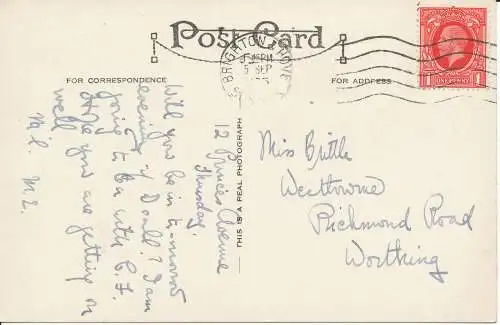 Post Card
FOR CORRESPONDENCE
FOR ADDRESS
BRIGHTON & HOVE
PM
5 SEP
ONE PENNY
THIS IS A REAL PHOTOGRAPH
12 Princes Avenue
Thursday.
Will you be in tomorrow
evening if I call? I am
going to be with C. F.
Hope you are getting on
well
M. L.
Miss Brittle
Westtowne
Richmond Road
Worthing